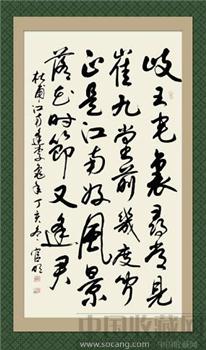 岐王宅裏尋常見
崔九堂前幾度聞
正是江南好風景
落花時節又逢君
杜甫江南逢李龜年 丁亥冬 官明
中国收藏网
www.socang.com 中国收藏网